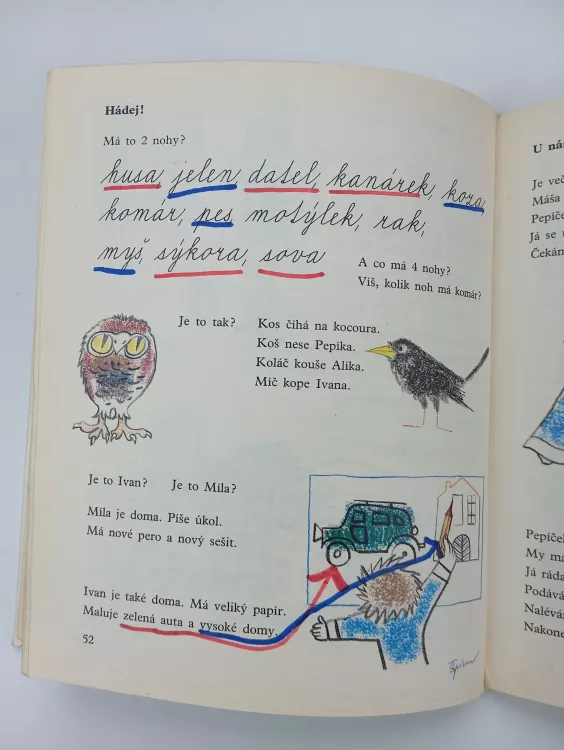 Hádej!
Má to 2 nohy?
husa, jelen, datel, kanárek, koza
komár, pes, motýlek, rak,
myš, sýkora, sova
A co má 4 nohy?
Víš, kolik noh má komár?
Je to tak?
Kos číhá na kocoura.
Koš nese Pepíka.
Koláč kouše Alíka.
Míč kope Ivana.
Je to Ivan? Je to Míla?
Míla je doma. Píše úkol.
Má nové pero a nový sešit.
Ivan je také doma. Má veliký papír.
Maluje zelená auta a vysoké domy.
52
U ná
Je več
Máša
Pepíče
Já se u
Čekán
Pepíček
My má
Já ráda
Podává
Nalévá
Nakone